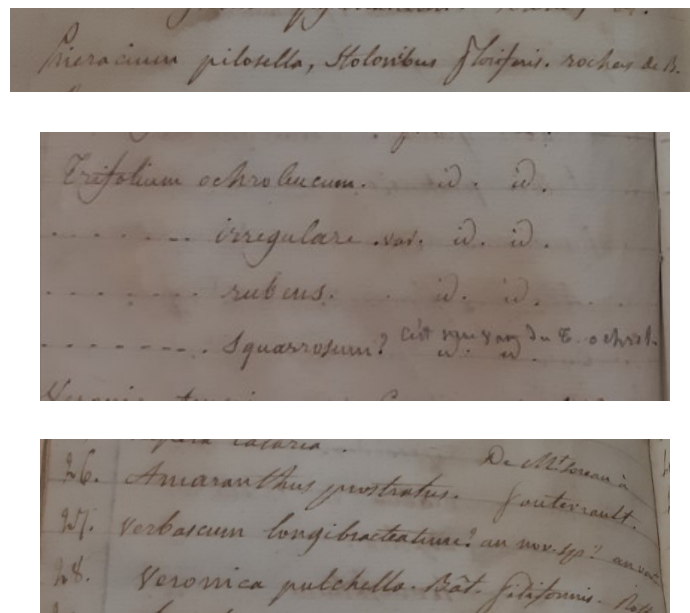 Hieracium pilosella, Stolonibus floriferis. roches de B.
Trifolium ochroleucum. id. id.
........ irregulare .var. id. id.
........ rubens. id. id.
........ Squarrosum? c'est une var du T. ochrol.
id. id.
De Mr
26. Amaranthus prostratus. fontevrault.
27. Verbascum longibracteatum? an nov. sp? an var
28. Veronica pulchella. Bât. filiformis.